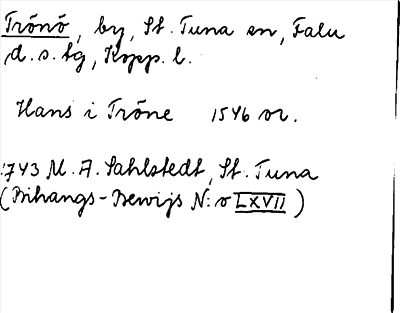 Trönö, by, St. Tuna sn, Falu
d.s. tg, Kopp. l.
Hans i Tröne 1546 or.
1743 M. A. Sahlstedt, St. Tuna
(Bihangs-Bewijs N:o LXVII)